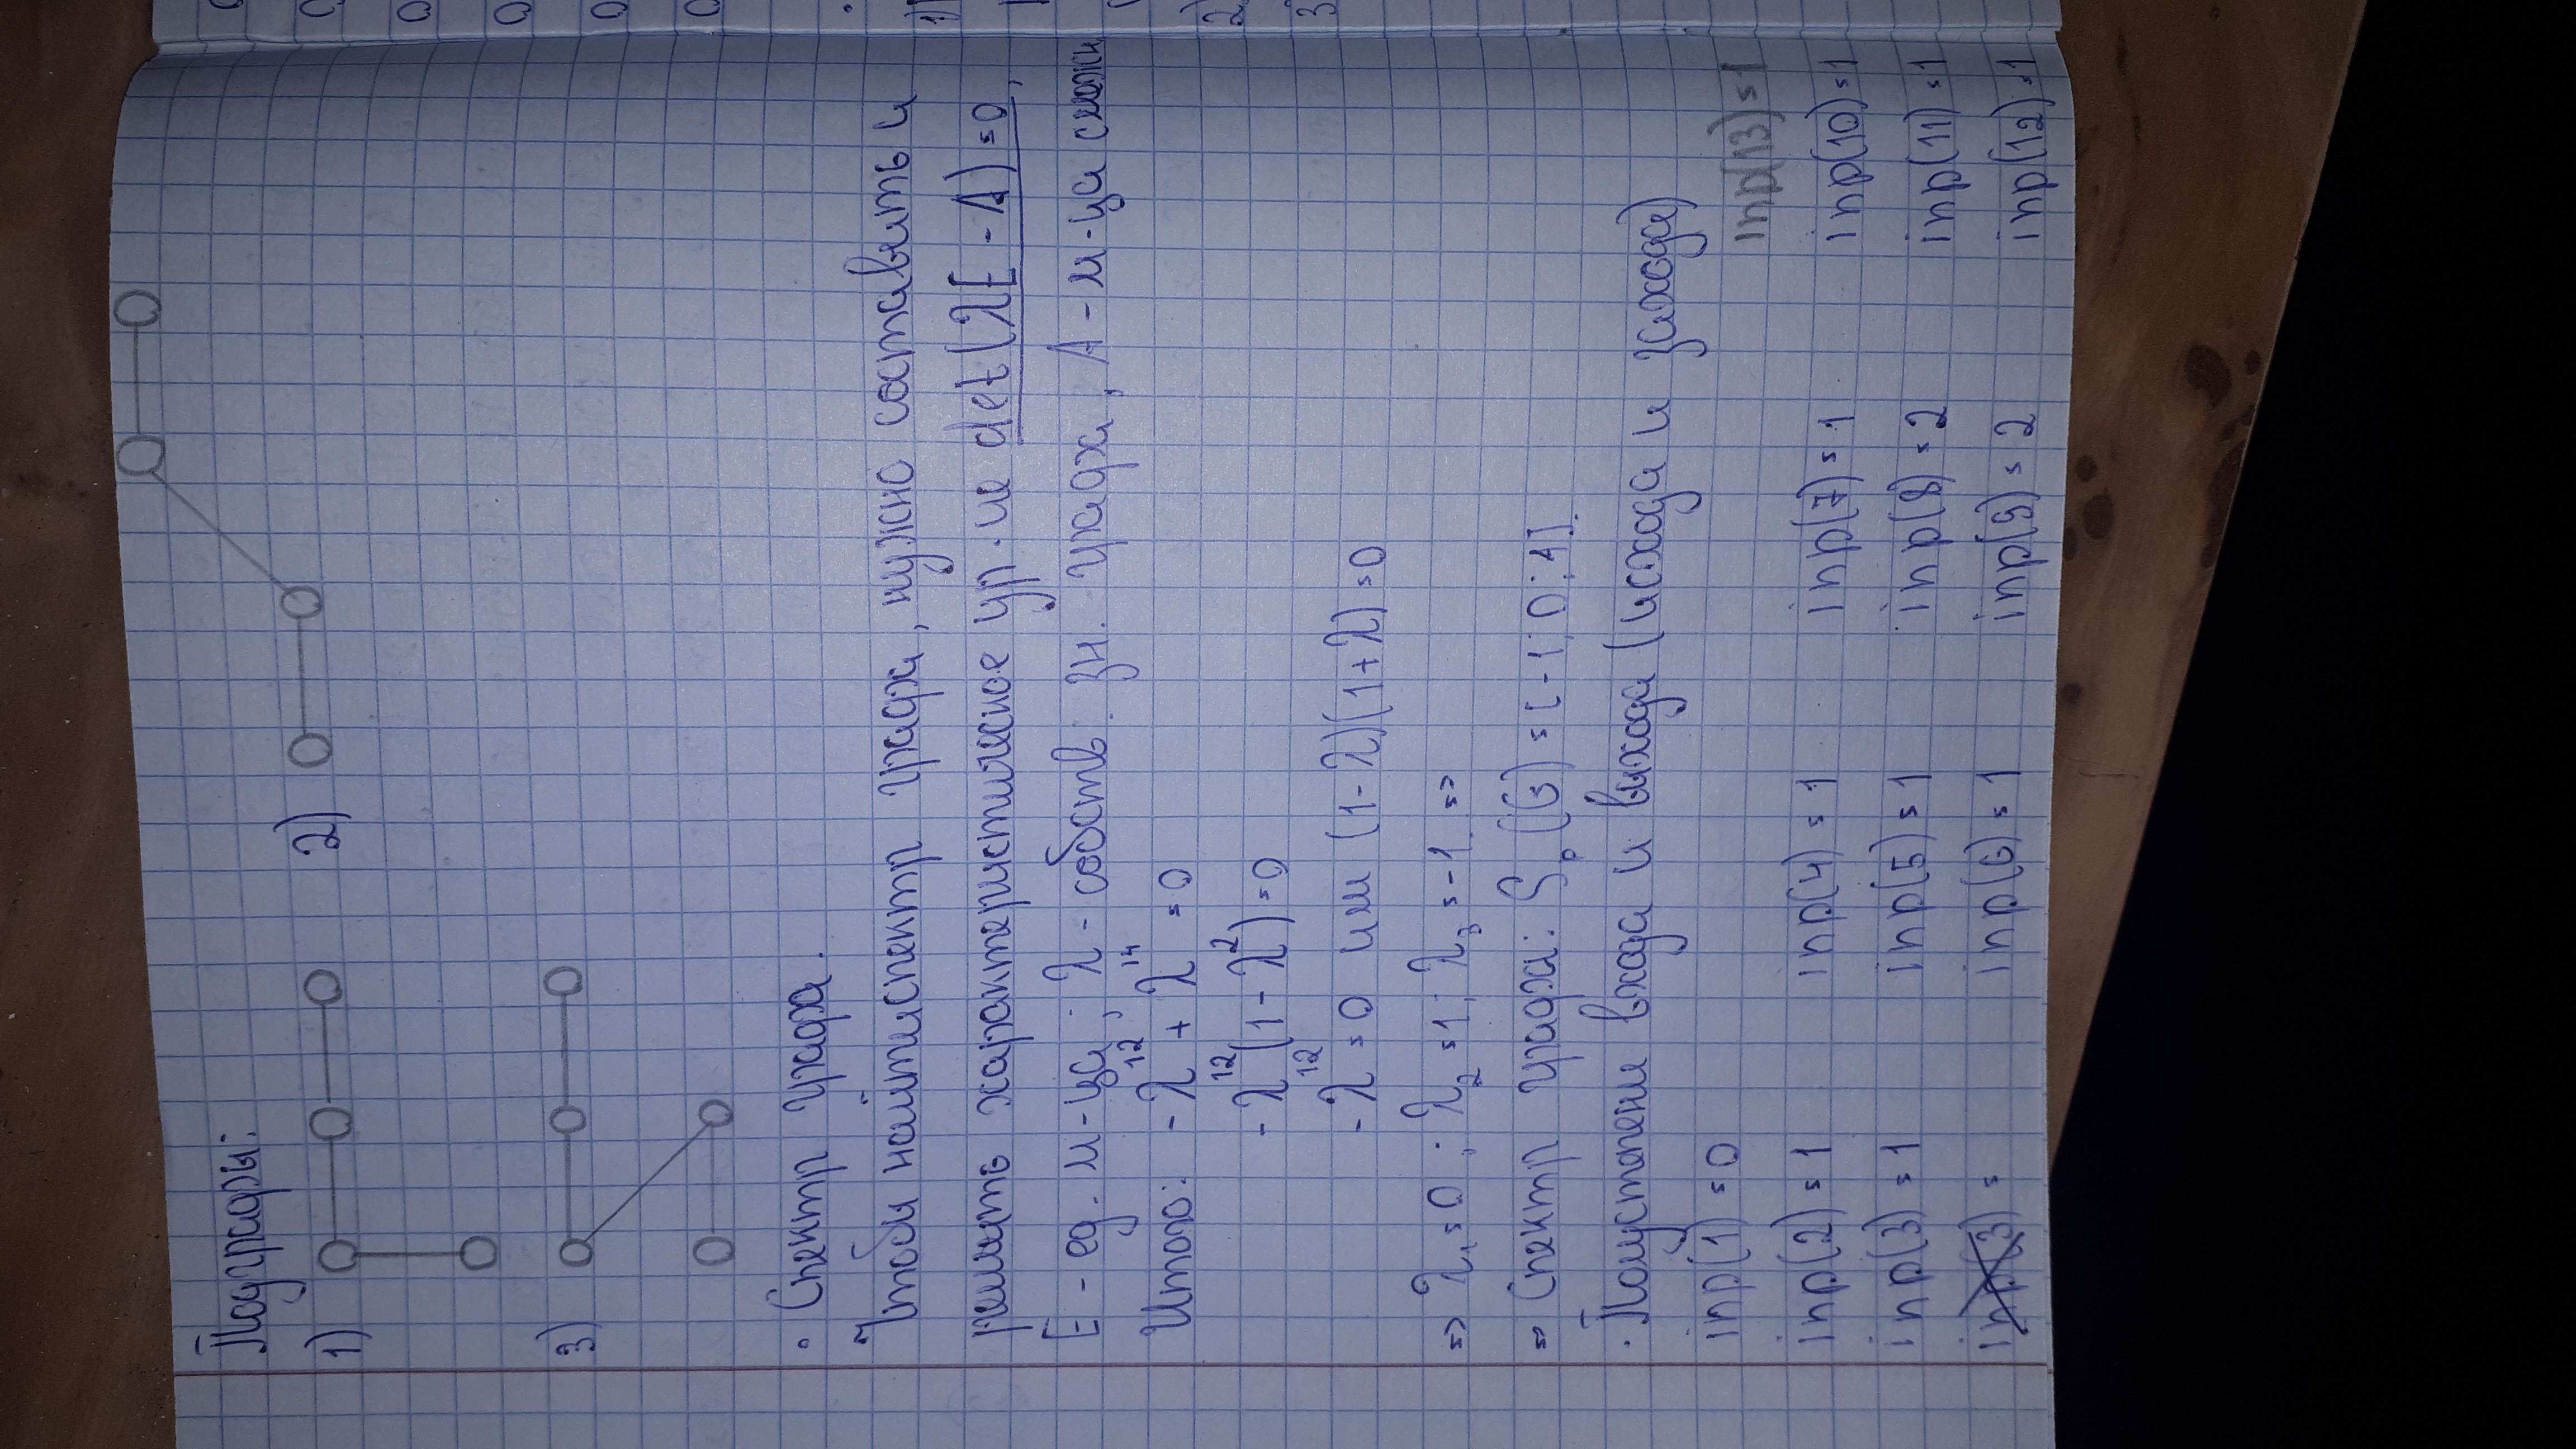 Подграфы:
1) 2)
3)
• Спектр графа.
Чтобы найти спектр графа, нужно составить и
решить характеристическое ур-ие det(λE - A) = 0,
E - ед. м-ца; λ - собств. зн. графа, A - м-ца смежн
Итого: -λ¹² + λ¹⁴ = 0
-λ¹²(1 - λ²) = 0
-λ¹² = 0 или (1-λ)(1+λ) = 0
=> λ₁ = 0 ; λ₂ = 1; λ₃ = -1 =>
=> Спектр графа: Sₚ(G) = [-1; 0; 1].
• Полустепени входа и выхода (исхода и захода)
inp(1) = 0 inp(13) = 1
inp(2) = 1 inp(4) = 1 inp(7) = 1 inp(10) = 1
inp(3) = 1 inp(5) = 1 inp(8) = 2 inp(11) = 1
inp(3) = inp(6) = 1 inp(9) = 2 inp(12) = 1